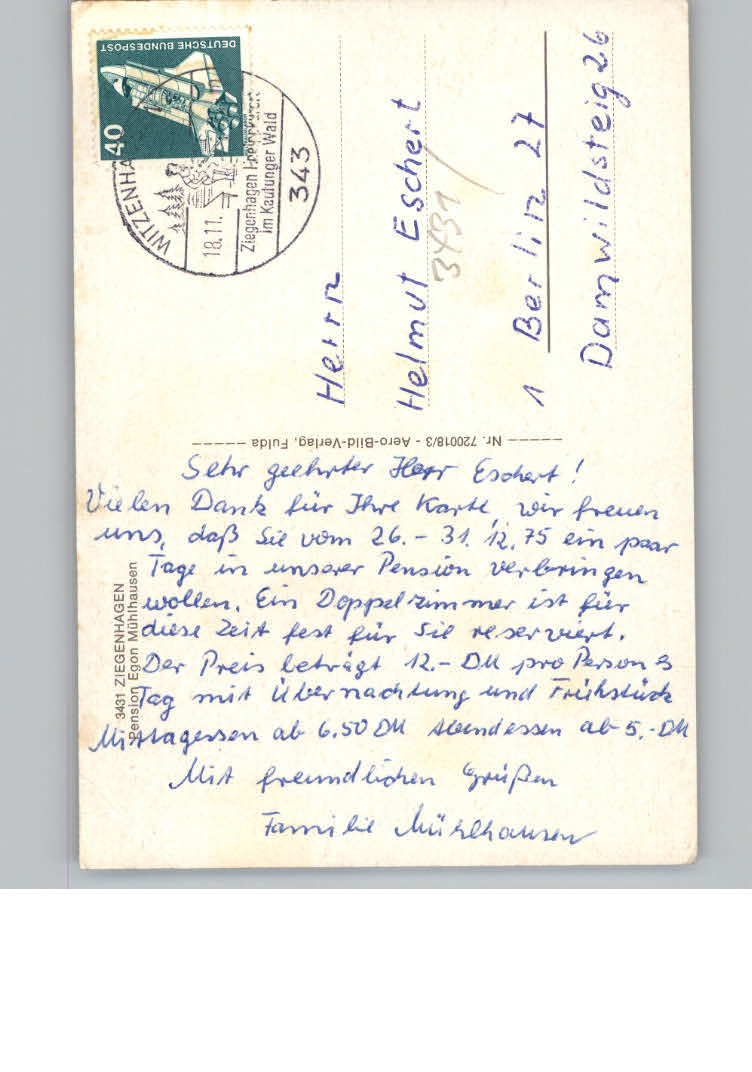 DEUTSCHE BUNDESPOST
40
WITZENHA
18.11.
Ziegenhagen
im Kaufunger Wald
343
Herrn
Helmut Eschert
3431
1 Berlin 27
Damwildsteig 26
Nr. 720018/3 - Aero-Bild-Verlag, Fulda
3431 ZIEGENHAGEN
Pension Egon Mühlhausen
Sehr geehrter Herr Eschert!
Vielen Dank für Ihre Karte, wir freuen
uns, daß Sie vom 26.- 31.12.75 ein paar
Tage in unserer Pension verbringen
wollen. Ein Doppelzimmer ist für
diese Zeit fest für Sie reserviert.
Der Preis beträgt 12.- DM pro Person
Tag mit Übernachtung und Frühstück
Mittagessen ab 6.50 DM Abendessen ab 5.- DM
Mit freundlichen Grüßen
Familie Mühlhausen